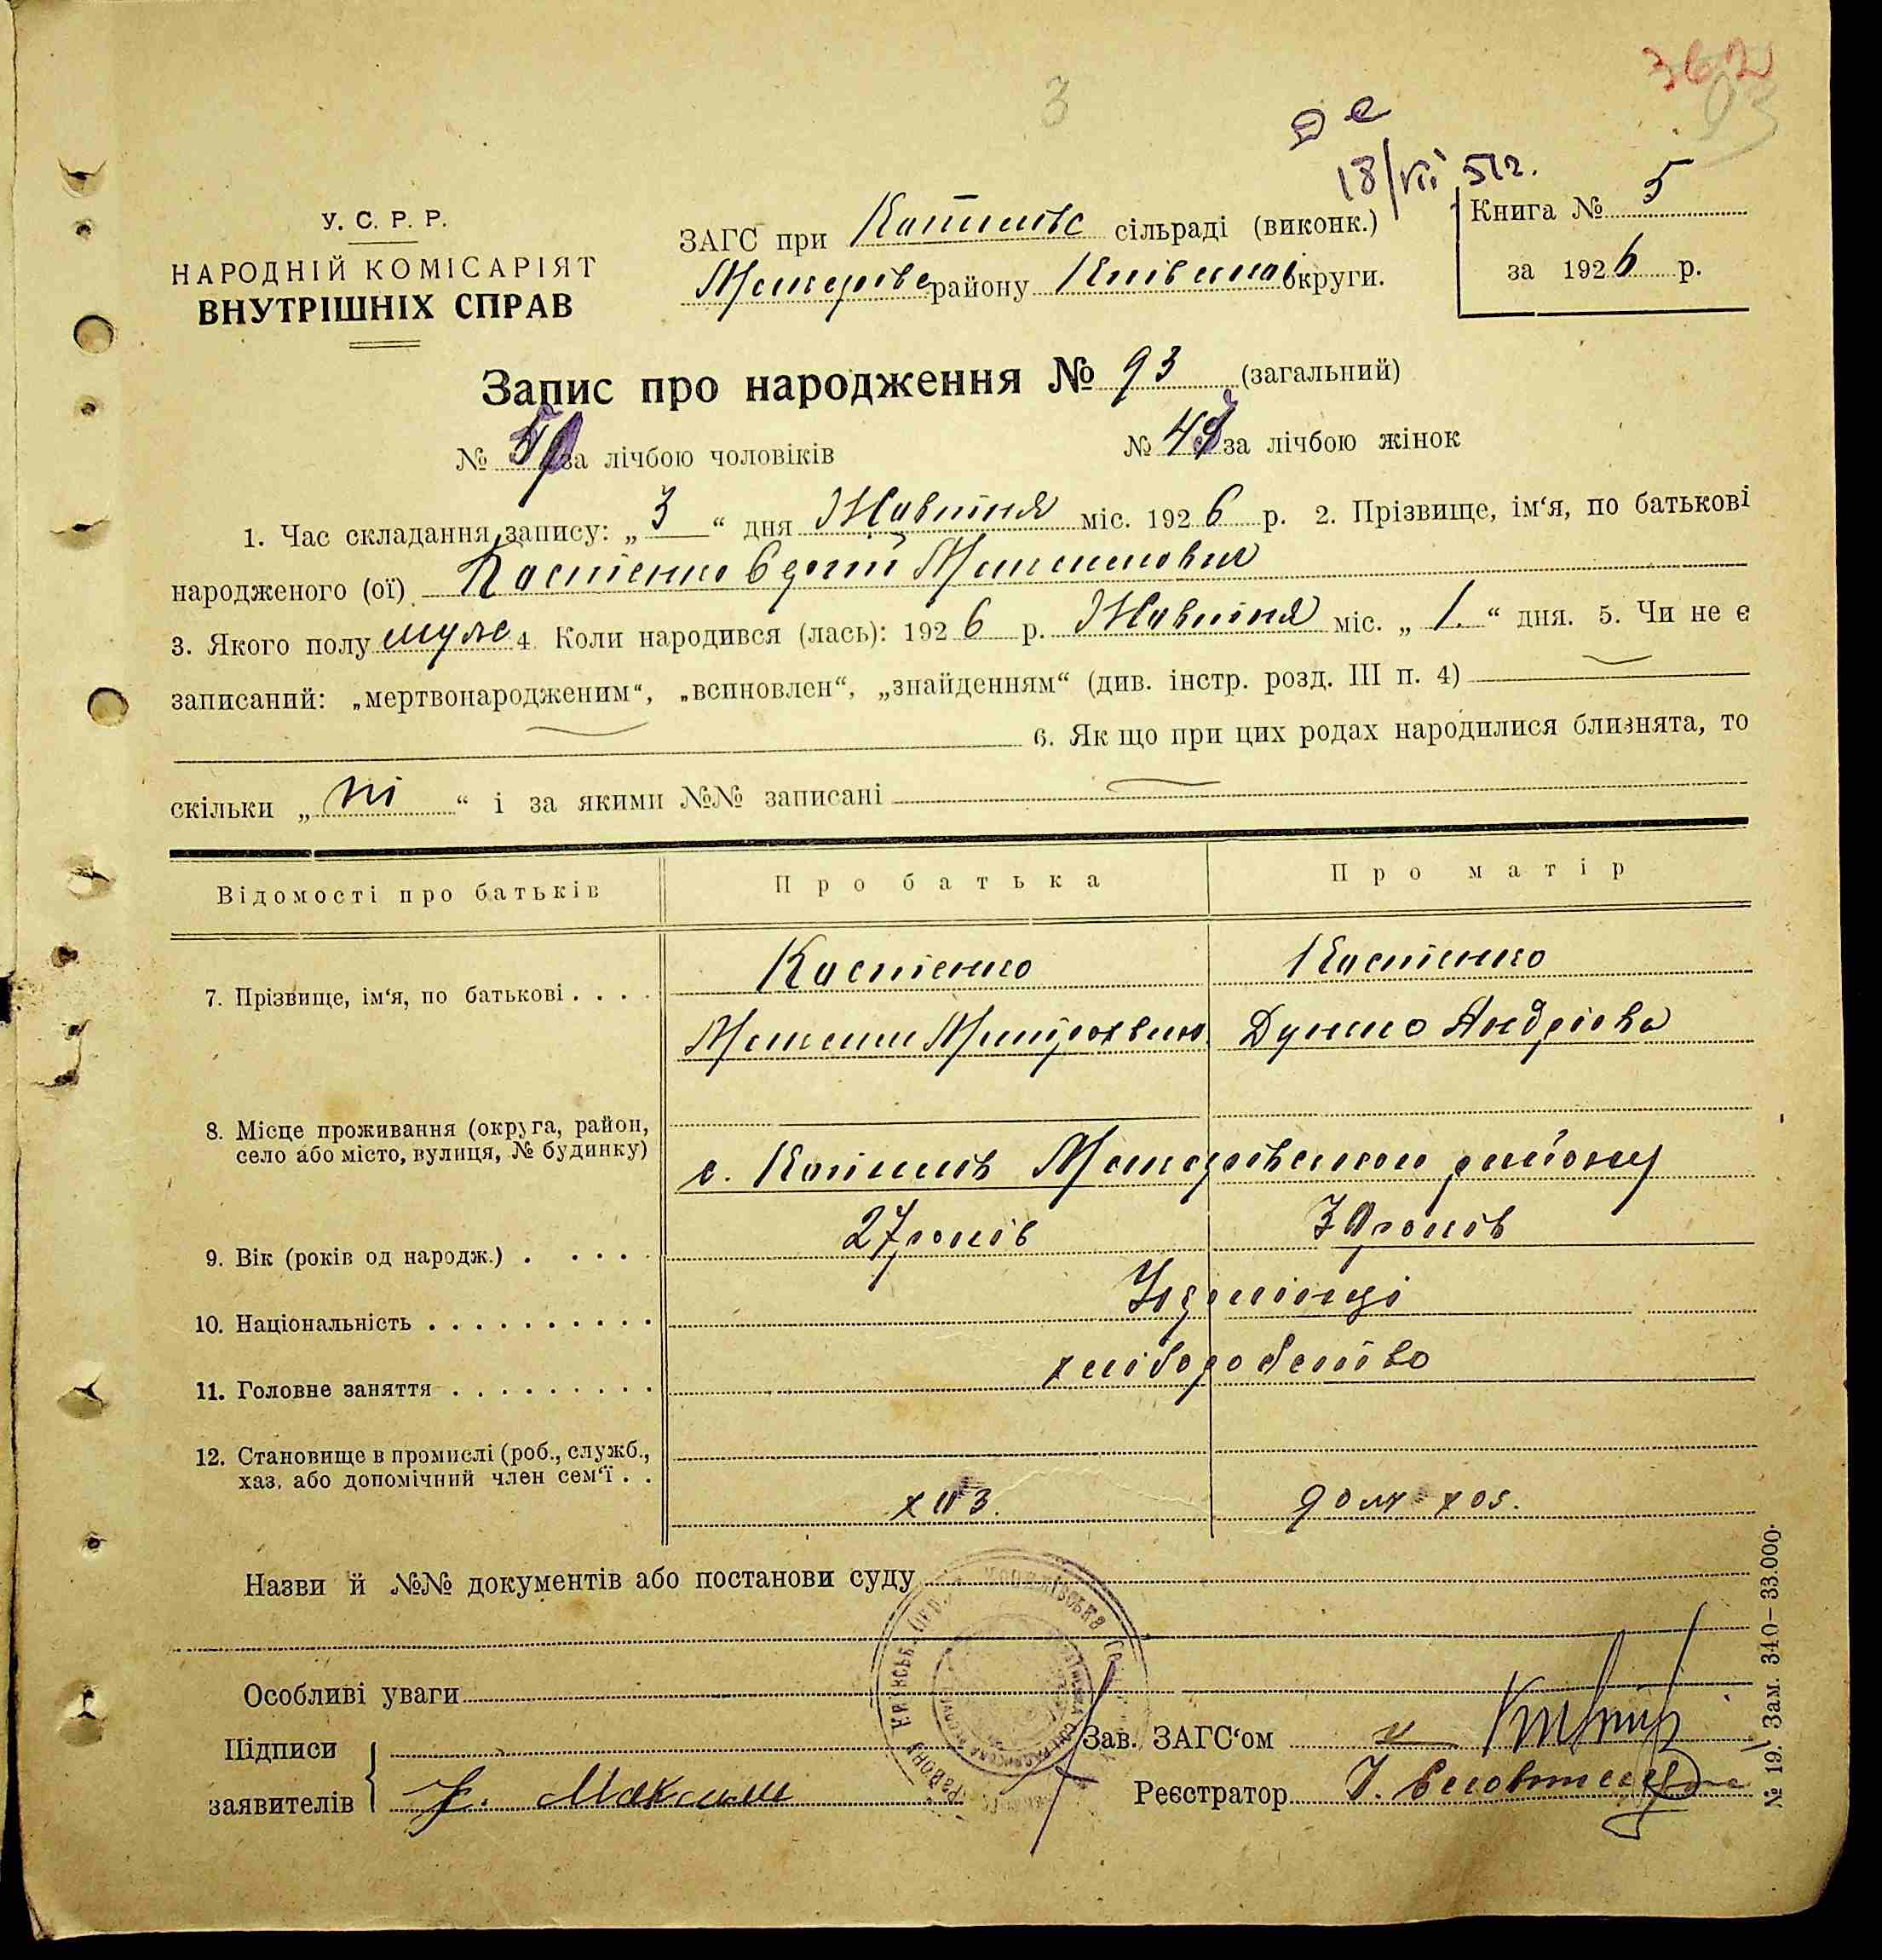 362
93
3
18/VII 51г.
У. С. Р. Р.
НАРОДНІЙ КОМІСАРІЯТ
ВНУТРІШНІХ СПРАВ
ЗАГС при Копилівс сільраді (виконк.)
Макарівс району Київської округи.
Книга № 5
за 1926 р.
Запис про народження № 93 (загальний)
№ за лічбою чоловіків
№ 4 за лічбою жінок
1. Час складання запису: „ 3 “ дня Жовтня міс. 1926 р. 2. Прізвище, ім‘я, по батькові
народженого (ої) Костієнко Сергій Максимович
3. Якого полу муже 4. Коли народився (лась): 1926 р. Жовтня міс. „ 1. “ дня. 5. Чи не є
записаний: „мертвонародженим“, „всиновлен“, „знайденням“ (див. інстр. розд. III п. 4)
6. Як що при цих родах народилися близнята, то
скільки „ ні “ і за якими №№ записані
Відомості про батьків
Про батька
Про матір
7. Прізвище, ім‘я, по батькові . . . .
Костієнко
Костієнко
Максим Митрохвон.
Дунико Андрієва
8. Місце проживання (округа, район,
село або місто, вулиця, № будинку)
с. Копилів Макарівського району
9. Вік (років од народж.) . . . . .
27 років
30 років
10. Національність . . . . . . . . . .
Українці
11. Головне заняття . . . . . . . . .
хліборобство
12. Становище в промислі (роб., служб.,
хаз. або допомічний член сем‘ї . .
хаз.
дом хоз.
Назви й №№ документів або постанови суду
Особливі уваги
Підписи
заявителів
К. Максим
Зав. ЗАГС‘ом
Реєстратор
№ 19. Зам. 340–33.000.